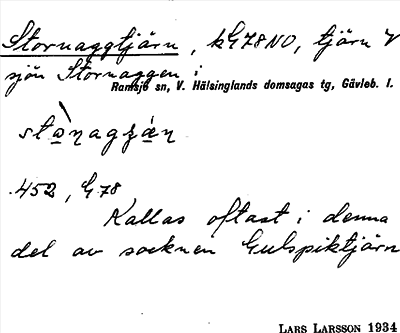 Stornaggtjärn, kG78NO, tjärn V
sjön Stornaggen i
Ramsjö sn, V. Hälsinglands domsagas tg, Gävleb. l.
452, G78
Kallas oftast i denna
del av socknen Gulspiktjärn
LARS LARSSON 1934